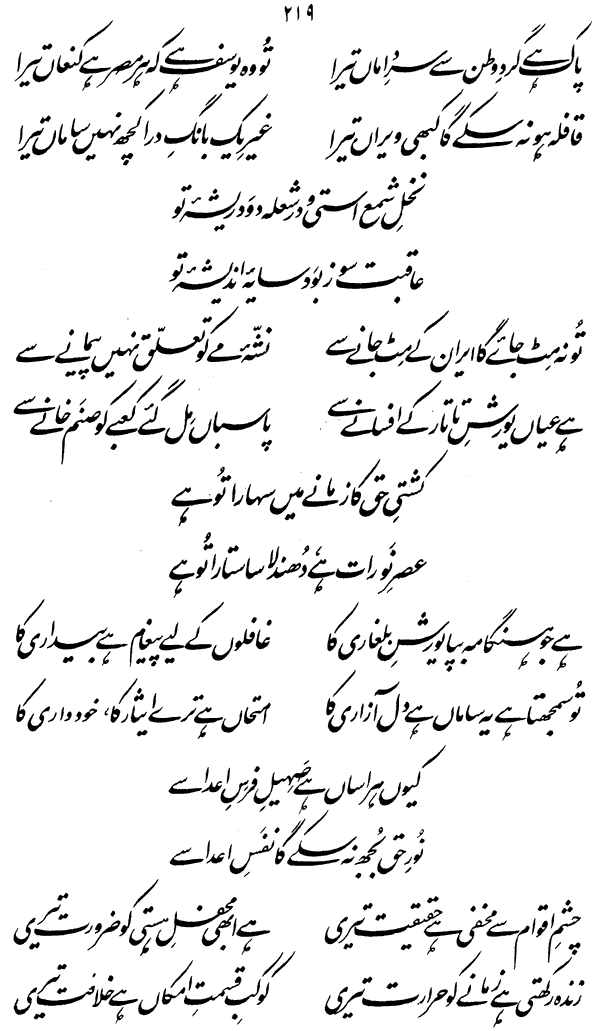 ۲۱۹
پاک ہے گردِ وطن سے سرِ داماں تیرا تُو وہ یوسف ہے کہ ہر مصر ہے کنعاں تیرا
قافلہ ہو نہ سکے گا کبھی ویراں تیرا غیرِ یک بانگِ درا کچھ نہیں ساماں تیرا
نخلِ شمع استی و در شعلہ دود ریشۂ تو
عاقبت سوز بود سایۂ اندیشۂ تو
تُو نہ مِٹ جائے گا ایران کے مِٹ جانے سے نشّۂ مے کو تعلّق نہیں پیمانے سے
ہے عیاں یورشِ تاتار کے افسانے سے پاسباں مِل گئے کعبے کو صنَم خانے سے
کشتیِ حق کا زمانے میں سہارا تُو ہے
عصرِ نَو رات ہے، دُھندلا سا ستارا تُو ہے
ہے جو ہنگامہ بپا یورشِ بلغاری کا غافلوں کے لیے پیغام ہے بیداری کا
تُو سمجھتا ہے یہ ساماں ہے دل آزاری کا امتحاں ہے ترے ایثار کا، خود داری کا
کیوں ہراساں ہے صَہیلِ فرَسِ اعدا سے
نُورِ حق بُجھ نہ سکے گا نفَسِ اعدا سے
چشمِ اقوام سے مخفی ہے حقیقت تیری ہے ابھی محفلِ ہستی کو ضرورت تیری
زندہ رکھتی ہے زمانے کو حرارت تیری کوکبِ قسمتِ امکاں ہے خلافت تیری